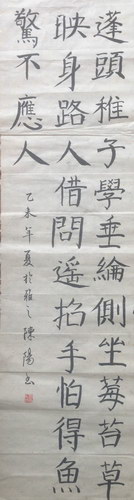 蓬頭稚子學垂綸側坐莓苔草
映身路人借問遙招手怕得魚
驚不應人
乙未年夏於
陳陽